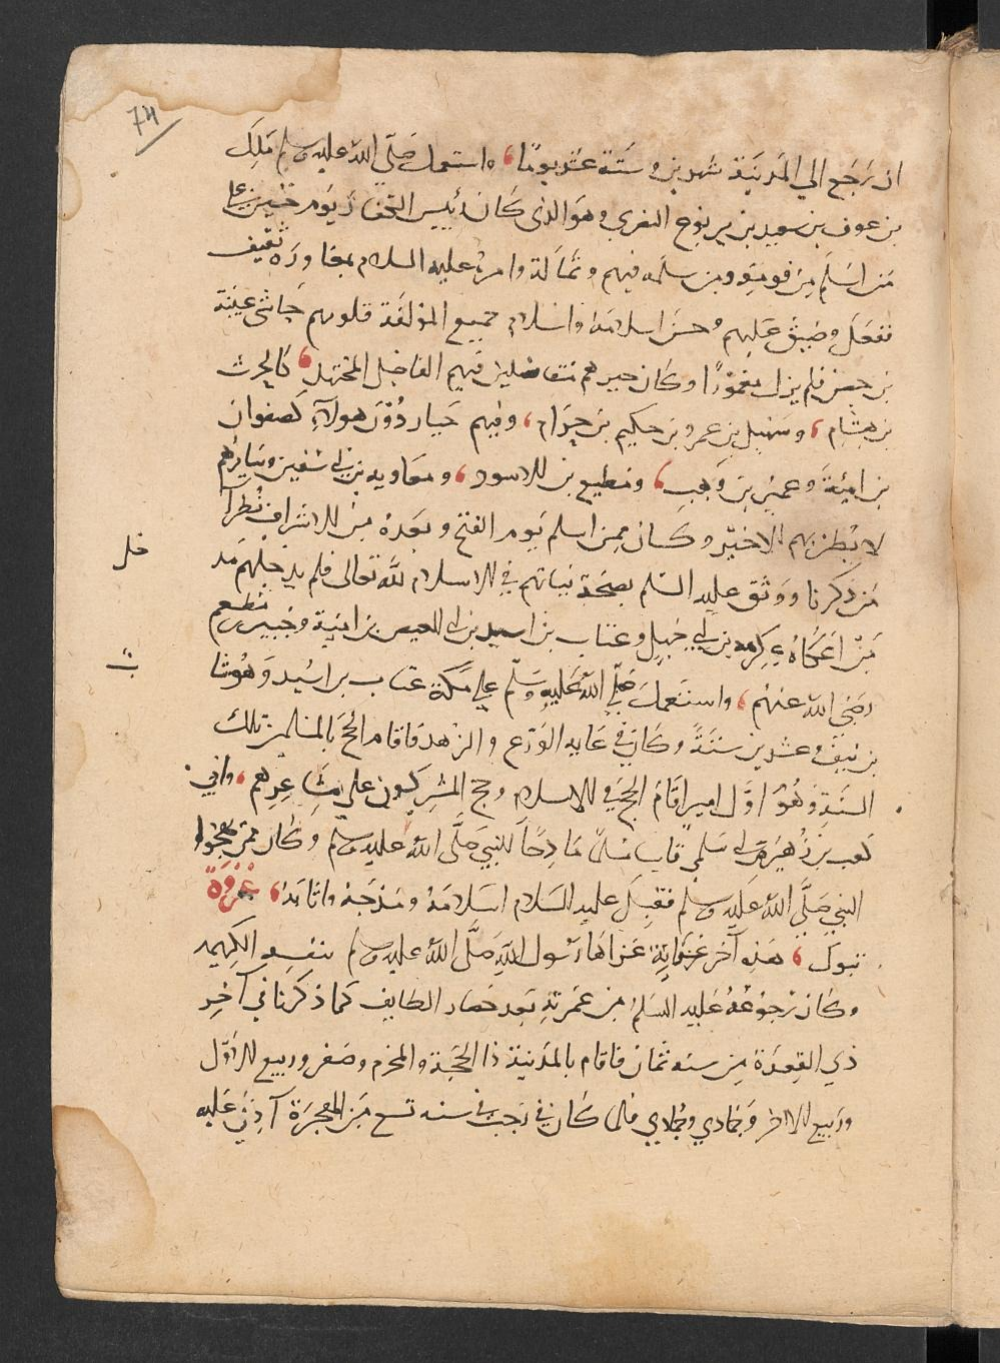 74
ان رجع الي المدينة شهرين وستة عشر يومًا، واستعمل صلّى الله عليه وسلم مَلِك
بن عوف بن سعيد بن يربوع النصري وهو الذي كان رئيس الكفار يَوم حنين على
مَن اسْلَم مِن قومِهِ ومن سلمه فهم وثمالة وامره عليه السلام بمغاورة ثقيف
ففعَل وضيق عَليهم وحسن اسلامه واسلام جميع المؤلفَة قلوبهم حاشى عيينة
بن حصن فلم يزل مغموزًا وكان خيرهم متفاضلين فيهم الفاضل المجتهد، كالحرث
بن هشام، وسهيل بن عمرو بن حكيم بن حِزام، وفيهم خيار دُوْن هولآءِ كصفوان
بن اميّةَ وعميْر بن وَهب، ومطيع بن الاسود، ومعاويه بن ابي سفين وسايرهم
لا يظن بهم الا خيرٌ وكان ممن اسلم يَوم الفتح وبَعدهُ من الاشراف نُظرآ
خل
مَن ذكرنا ووثق عليه السّلم بصحّة نياتهم في الاسلام لله تعالى فلم يدخلهم مد
مَنْ اعطاهُ عِكرمه بن ابي جهل وعتاب بن اسيد بن ابي العيص بن اميّة وجبير بن مطعم
رضي الله عنهُم، واستعملَ صلّى اللهُ عَليهِ وسَلّم علي مكّة عتاب بن اسُيد وَهُوَ شا
ب
بن نيّف وعشرين سنَةً وكان في غايه الوَرَع والزهد فاقام الحَجّ بالمسلمين تلك
السَّنة وَهُوَ اوّل اميرٍ اقامَ الحَجّ في الاسلام وحج المشركون علي مشاعِرِهم، واتي
كعب بن زُهَيْر بن ابي سَلمى تايبًا مَادِحًا للنبي صَلّى اللهُ عَليه وسلم وكان ممن يهجوا
النبي صَلّى اللهُ عَليه وسلم فقبِل عليه السّلام اسْلامَهُ ومَدْحَهُ واثابَهُ، غزوة
تبوك، هَذِه آخر غزَاةٍ غزاها رَسُول اللهِ صَلّى اللهُ عليه وسلم بنفسِه الكريمه
وكان رُجوْعُهُ عَليه السّلمُ مِن عمرتهِ بَعد حصار الطايف كما ذكرنا في آخِر
ذي القِعدَة مِن سنه ثمان فاقام بالمَدينة ذا الحِجّة والمحرم وصَفر وربيع الاوّل
وربيع الاخر وَجُمادي وجمادي فلما كان في رَجبْ في سنه تسع مِن الهجرَة آذنَ عَليه